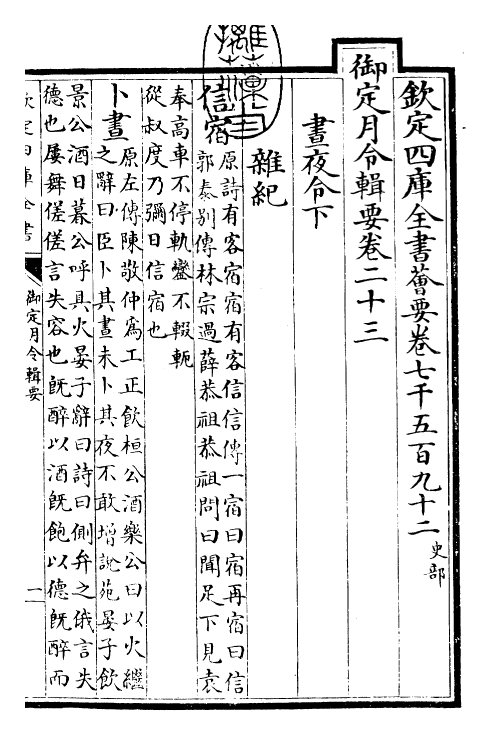 欽定四庫全書薈要卷七千五百九十二史部
御定月令輯要卷二十三
晝夜令下
雜紀
信宿原詩有客宿宿有客信信傳一宿曰宿再宿曰信
郭泰别傳林宗過薛恭祖恭祖問曰聞足下見袁
奉高車不停軌鑾不輟軛
從叔度乃彌日信宿也
卜晝原左傳陳敬仲為工正飲桓公酒樂公曰以火繼
之辭曰臣卜其晝未卜其夜不敢增說苑晏子飲
景公酒日暮公呼具火晏子辭曰詩曰側弁之俄言失
德也屢舞傞傞言失容也既醉以酒既飽以德既醉而
欽定四庫全書
御定月令輯要
一